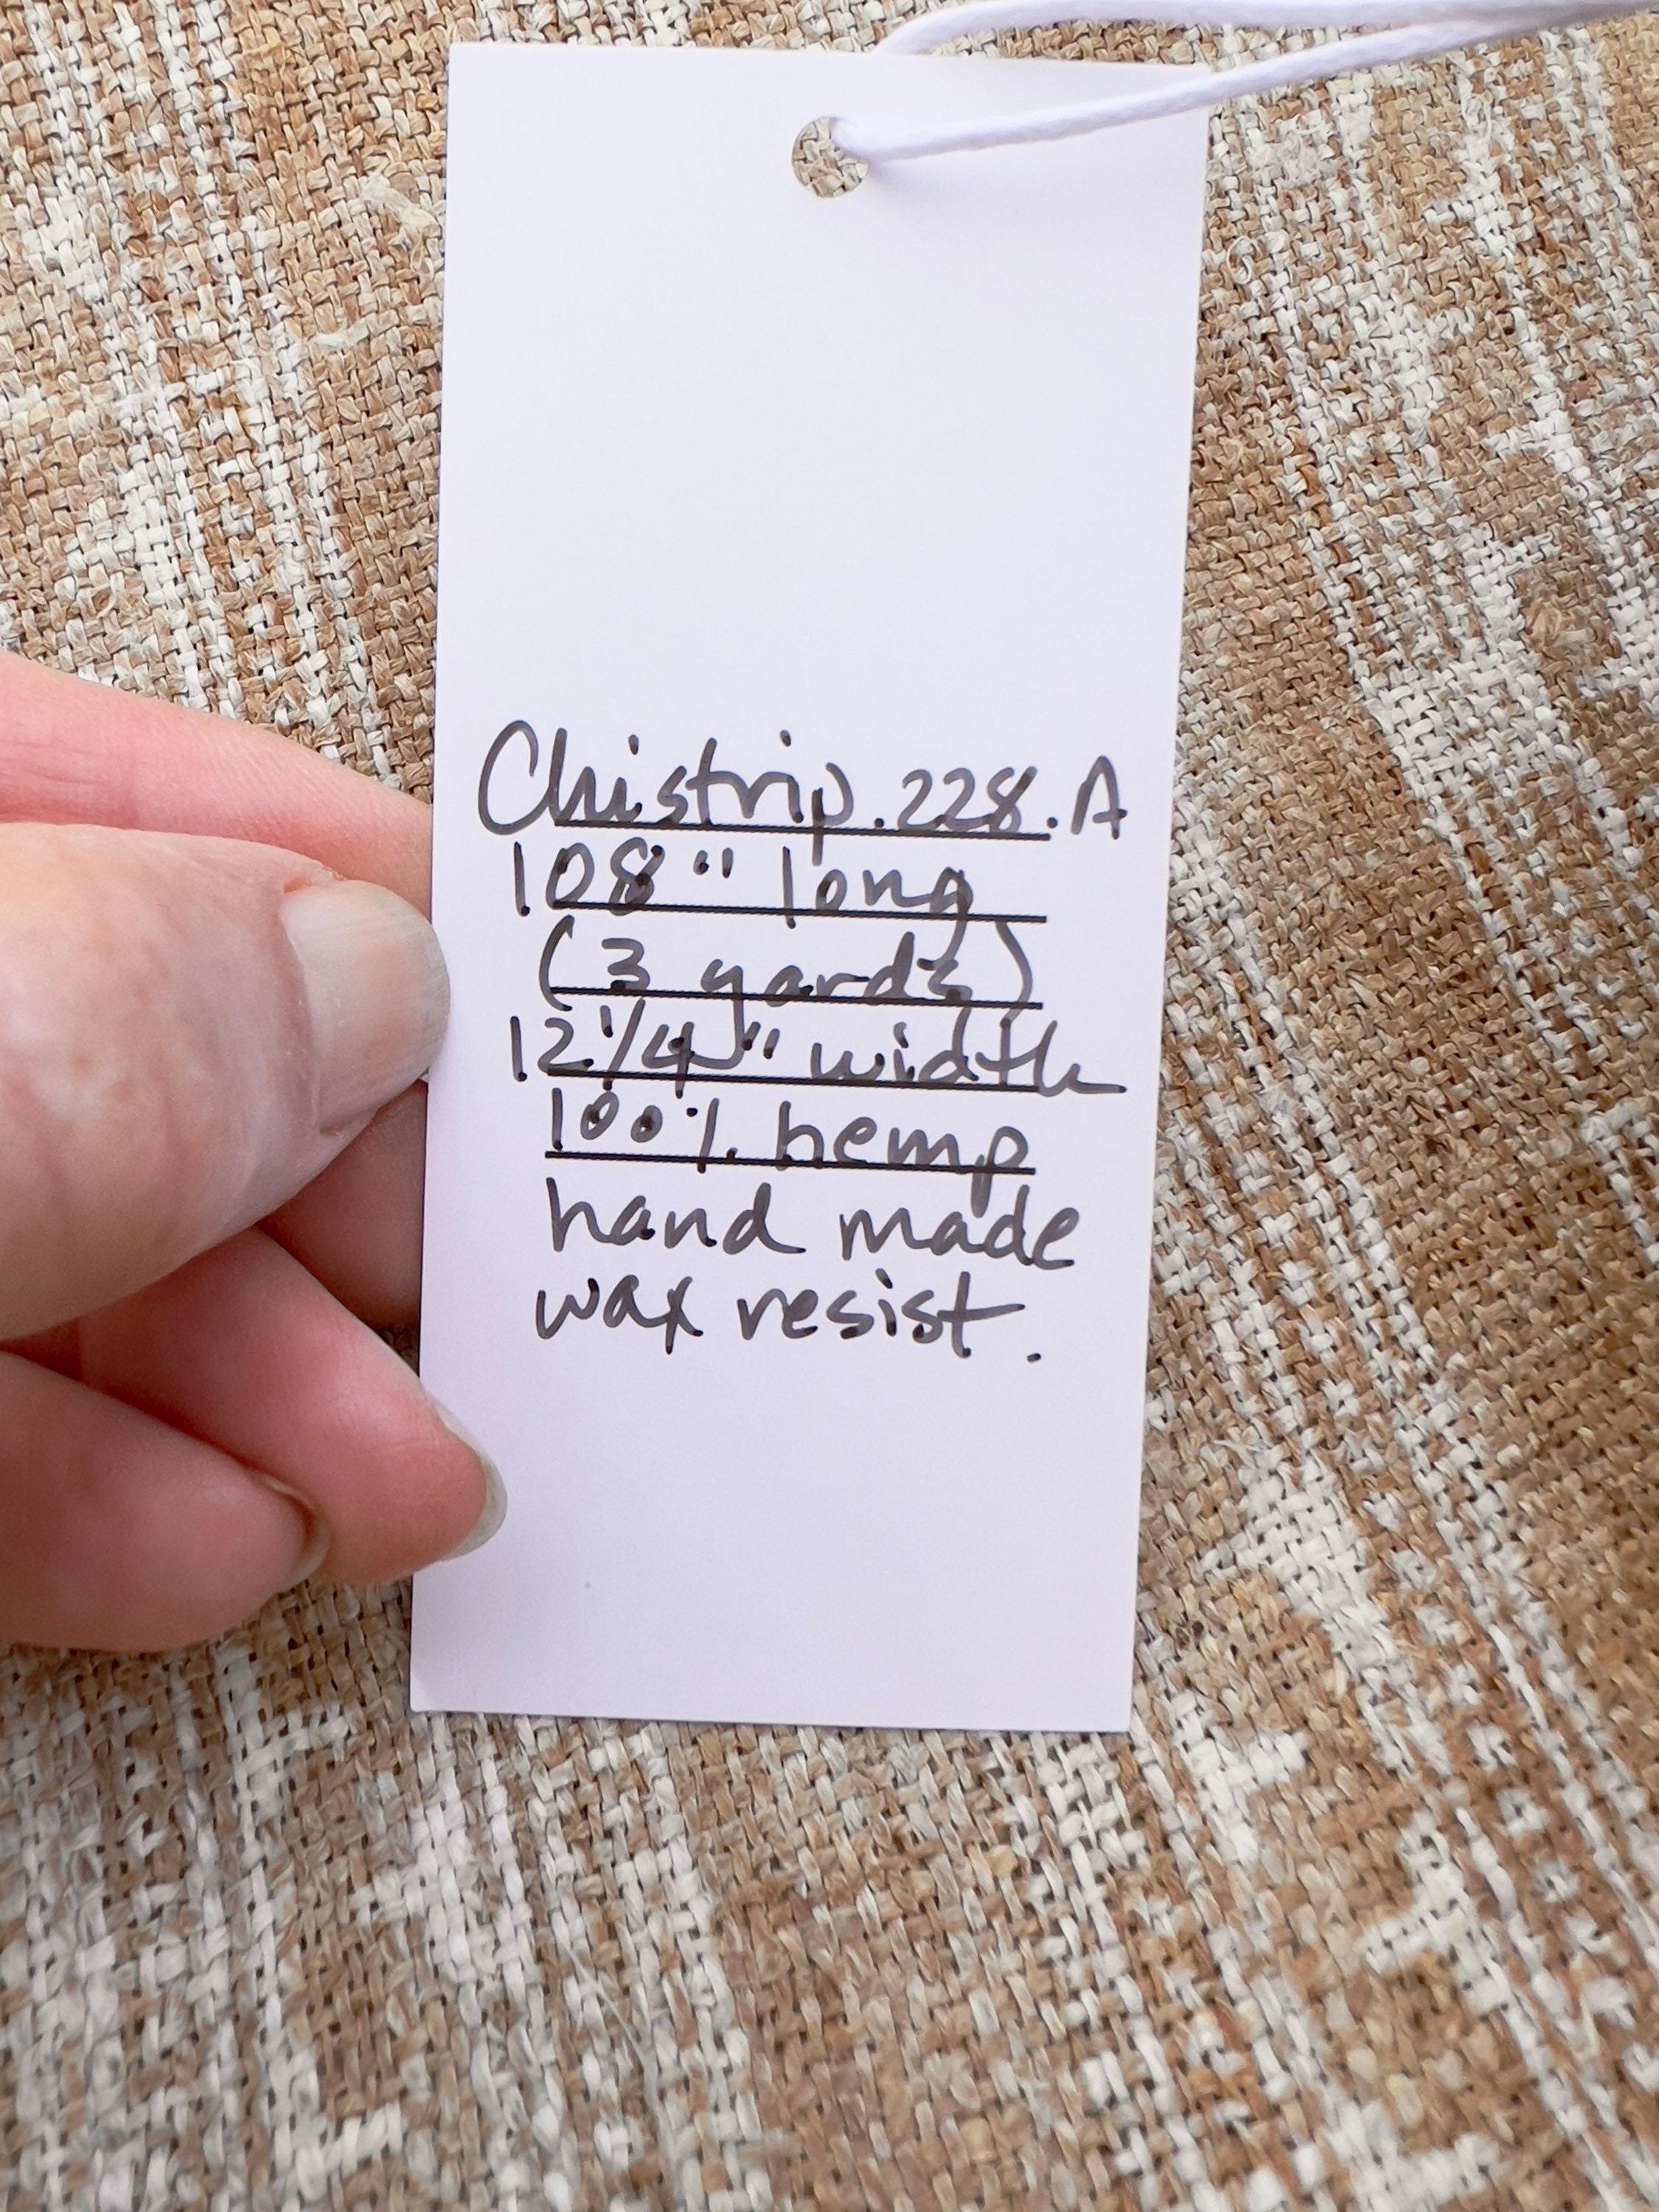 Chistrip.228.A
108" long
(3 yards)
12 1/4" width
100% hemp
hand made
wax resist.